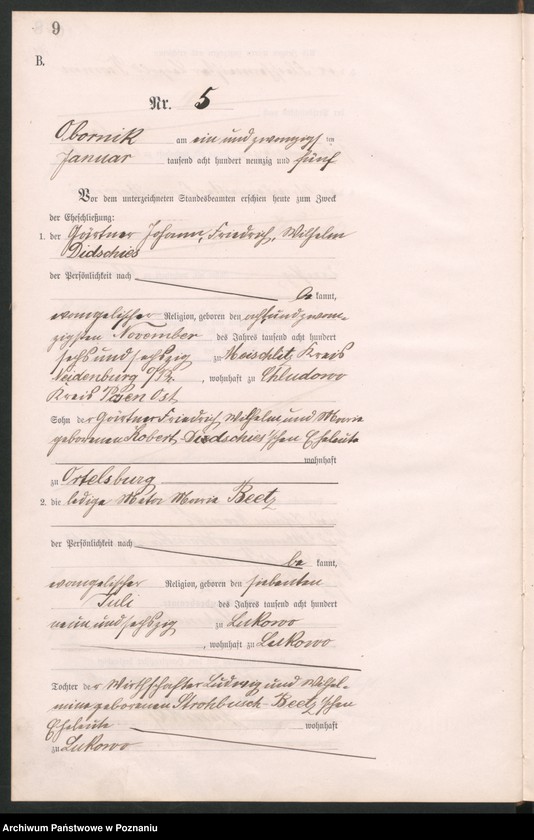 9
B.
Nr. 5
Obornik am ein und zwanzigsten
Januar tausend acht hundert neunzig und fünf
Vor dem unterzeichneten Standesbeamten erschien heute zum Zweck
der Eheschließung:
1. der Gärtner Johann, Friedrich, Wilhelm
Didschies
der Persönlichkeit nach
be kannt,
evangelischer Religion, geboren den acht und zwan-
zigsten November des Jahres tausend acht hundert
sechs und sechszig zu Kreis
Neidenburg O/Pr. , wohnhaft zu Chludowo
Kreis Posen Ost
Sohn der Gärtner Friedrich Wilhelm und Marie
geborenen Robert Didschies'schen Eheleute
wohnhaft
zu Ortelsburg
2. die ledige Meta Marie Beetz
der Persönlichkeit nach
be kannt,
evangelischer Religion, geboren den siebenten
Juli des Jahres tausend acht hundert
neun und sechszig zu Lukowo
, wohnhaft zu Lukowo
Tochter der Wirthschafter Ludwig und Wilhel-
mine geborenen Strohbusch-Beetz'schen
Eheleute wohnhaft
zu Lukowo
Archiwum Państwowe w Poznaniu